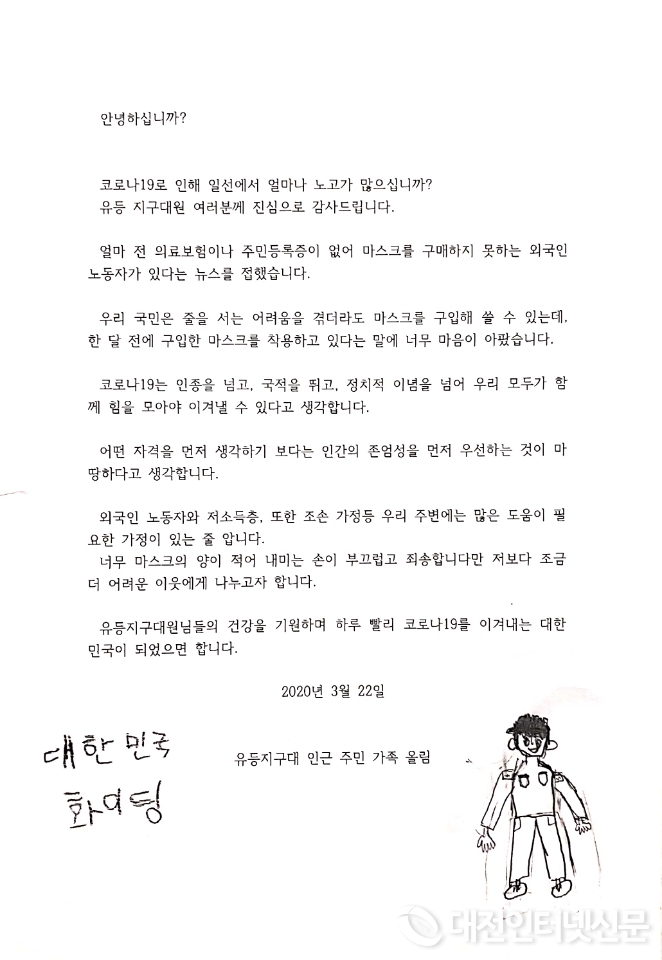 안녕하십니까?
코로나19로 인해 일선에서 얼마나 노고가 많으십니까?
유등 지구대원 여러분께 진심으로 감사드립니다.
얼마 전 의료보험이나 주민등록증이 없어 마스크를 구매하지 못하는 외국인
노동자가 있다는 뉴스를 접했습니다.
우리 국민은 줄을 서는 어려움을 겪더라도 마스크를 구입해 쓸 수 있는데,
한 달 전에 구입한 마스크를 착용하고 있다는 말에 너무 마음이 아팠습니다.
코로나19는 인종을 넘고, 국적을 뛰고, 정치적 이념을 넘어 우리 모두가 함
께 힘을 모아야 이겨낼 수 있다고 생각합니다.
어떤 자격을 먼저 생각하기 보다는 인간의 존엄성을 먼저 우선하는 것이 마
땅하다고 생각합니다.
외국인 노동자와 저소득층, 또한 조손 가정등 우리 주변에는 많은 도움이 필
요한 가정이 있는 줄 압니다.
너무 마스크의 양이 적어 내미는 손이 부끄럽고 죄송합니다만 저보다 조금
더 어려운 이웃에게 나누고자 합니다.
유등지구대원님들의 건강을 기원하며 하루 빨리 코로나19를 이겨내는 대한
민국이 되었으면 합니다.
2020년 3월 22일
유등지구대 인근 주민 가족 올림
대한민국
화이팅
대전인터넷신문